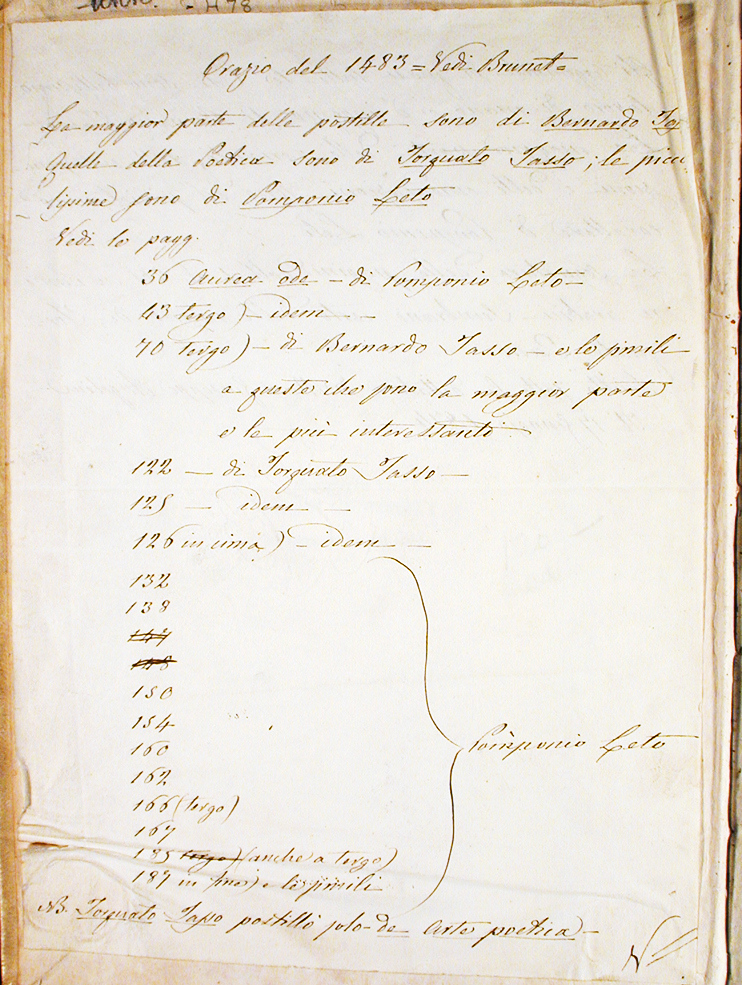 - 478
Orazio del 1483 = Vedi Brunet =
La maggior parte delle postille sono di Bernardo Tas
Quelle della Poetica sono di Torquato Tasso; le picco
lissime sono di Pomponio Leto
Vedi le pagg.
36 Aurea ode - di Pomponio Leto -
43 tergo) - idem -
70 tergo) - di Bernardo Tasso - e le simili
a queste che sono la maggior parte
e le più interessanti.
122 - di Torquato Tasso -
125 - idem -
126 in cima) - idem -
132
138
147
148
150
154
160
162
166 (tergo)
167
Pomponio Leto
185 tergo) (anche a tergo)
187 in fine) e le simili
NB. Torquato Tasso postillò solo de Arte poetica -